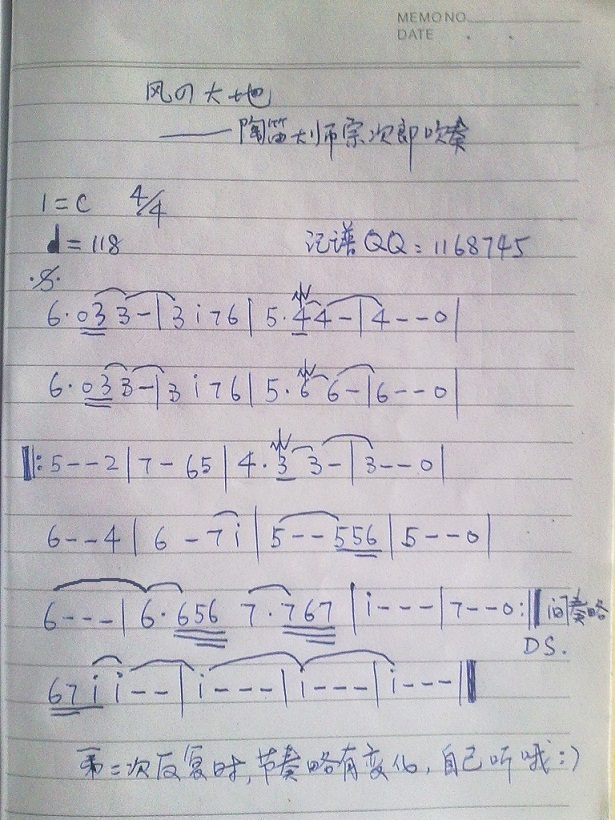 MEMO NO.
DATE . .
风の大地
——陶笛大师宗次郎吹奏
1=C 4/4
♩=118 记谱QQ:1168745
𝄋
6·033-|3i76|5·44-|4--0|
6·033-|3i76|5·66-|6--0|
‖:5--2|7-65|4·33-|3--0|
6--4|6-7i|5--556|5---0|
6---|6·656 7·767|i---|7--0:‖间奏略
DS.
67ii--|i---|i---|i---‖
第二次反复时,节奏略有变化,自己听哦:)